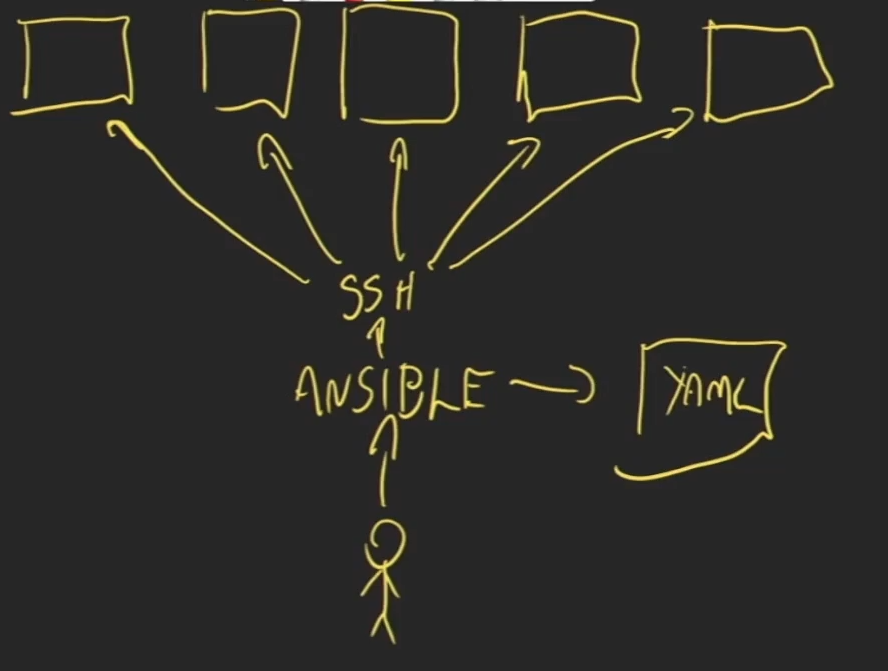 SSH
ANSIBLE
YAML